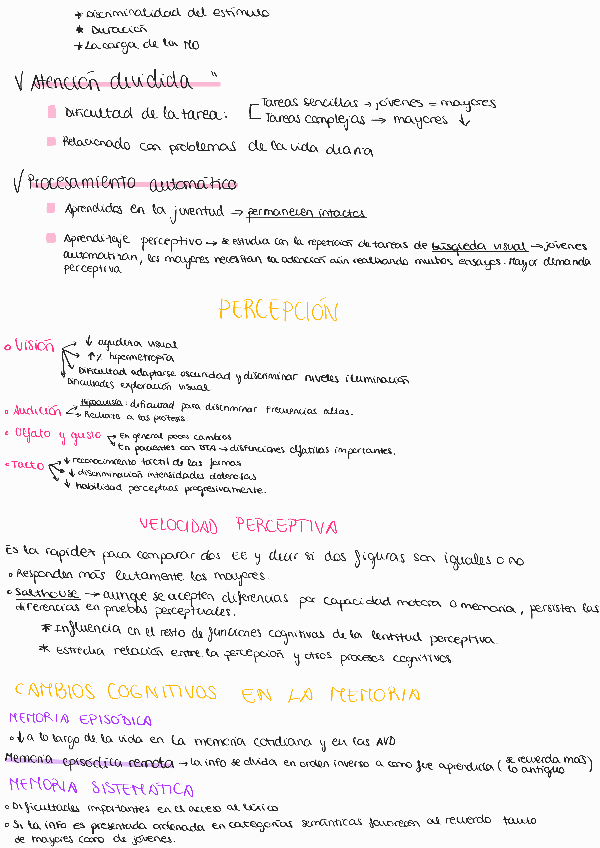 * Discriminalidad del estímulo
* Duración
* La carga de la MO
√ Atención dividida "
Dificultad de la tarea: Tareas sencillas → jóvenes = mayores
Tareas complejas → mayores ↓
Relacionado con problemas de la vida diaria
√ Procesamiento automático
Aprendidos en la juventud → permanecen intactos
Aprendizaje perceptivo → se estudia con la repetición de tareas de búsqueda visual → jóvenes
automatizan, los mayores necesitan la atención aún realizando muchos ensayos. Mayor demanda
perceptiva
PERCEPCIÓN
• Visión → ↓ agudeza visual
↑% hipermetropía
Dificultad adaptarse oscuridad y discriminar niveles iluminación
Dificultades exploración visual
• Audición → Hipoacusia: dificultad para discriminar frecuencias altas.
Rechazo a las prótesis
• Olfato y gusto → En general pocos cambios
En pacientes con DTA → disfunciones olfativas importantes.
• Tacto → ↓ reconocimiento táctil de las formas
↓ discriminación intensidades dolorosas
↓ habilidad perceptivas progresivamente.
VELOCIDAD PERCEPTIVA
Es la rapidez para comparar dos EE y decir si dos figuras son iguales o no
• Responden más lentamente los mayores.
• Salthouse → aunque se acepten diferencias por capacidad motora o memoria, persisten las
diferencias en pruebas perceptuales.
* Influencia en el resto de funciones cognitivas de la lentitud perceptiva
* Estrecha relación entre la percepción y otros procesos cognitivos
CAMBIOS COGNITIVOS EN LA MEMORIA
MEMORIA EPISÓDICA
• ↓ a lo largo de la vida en la memoria cotidiana y en las AVD
Memoria episódica remota → la info se olvida en orden inverso a como fue aprendida (se recuerda más
lo antiguo)
MEMORIA SISTEMÁTICA
• Dificultades importantes en el acceso al léxico
• Si la info es presentada ordenada en categorías semánticas favorecen al recuerdo tanto
de mayores como de jóvenes.